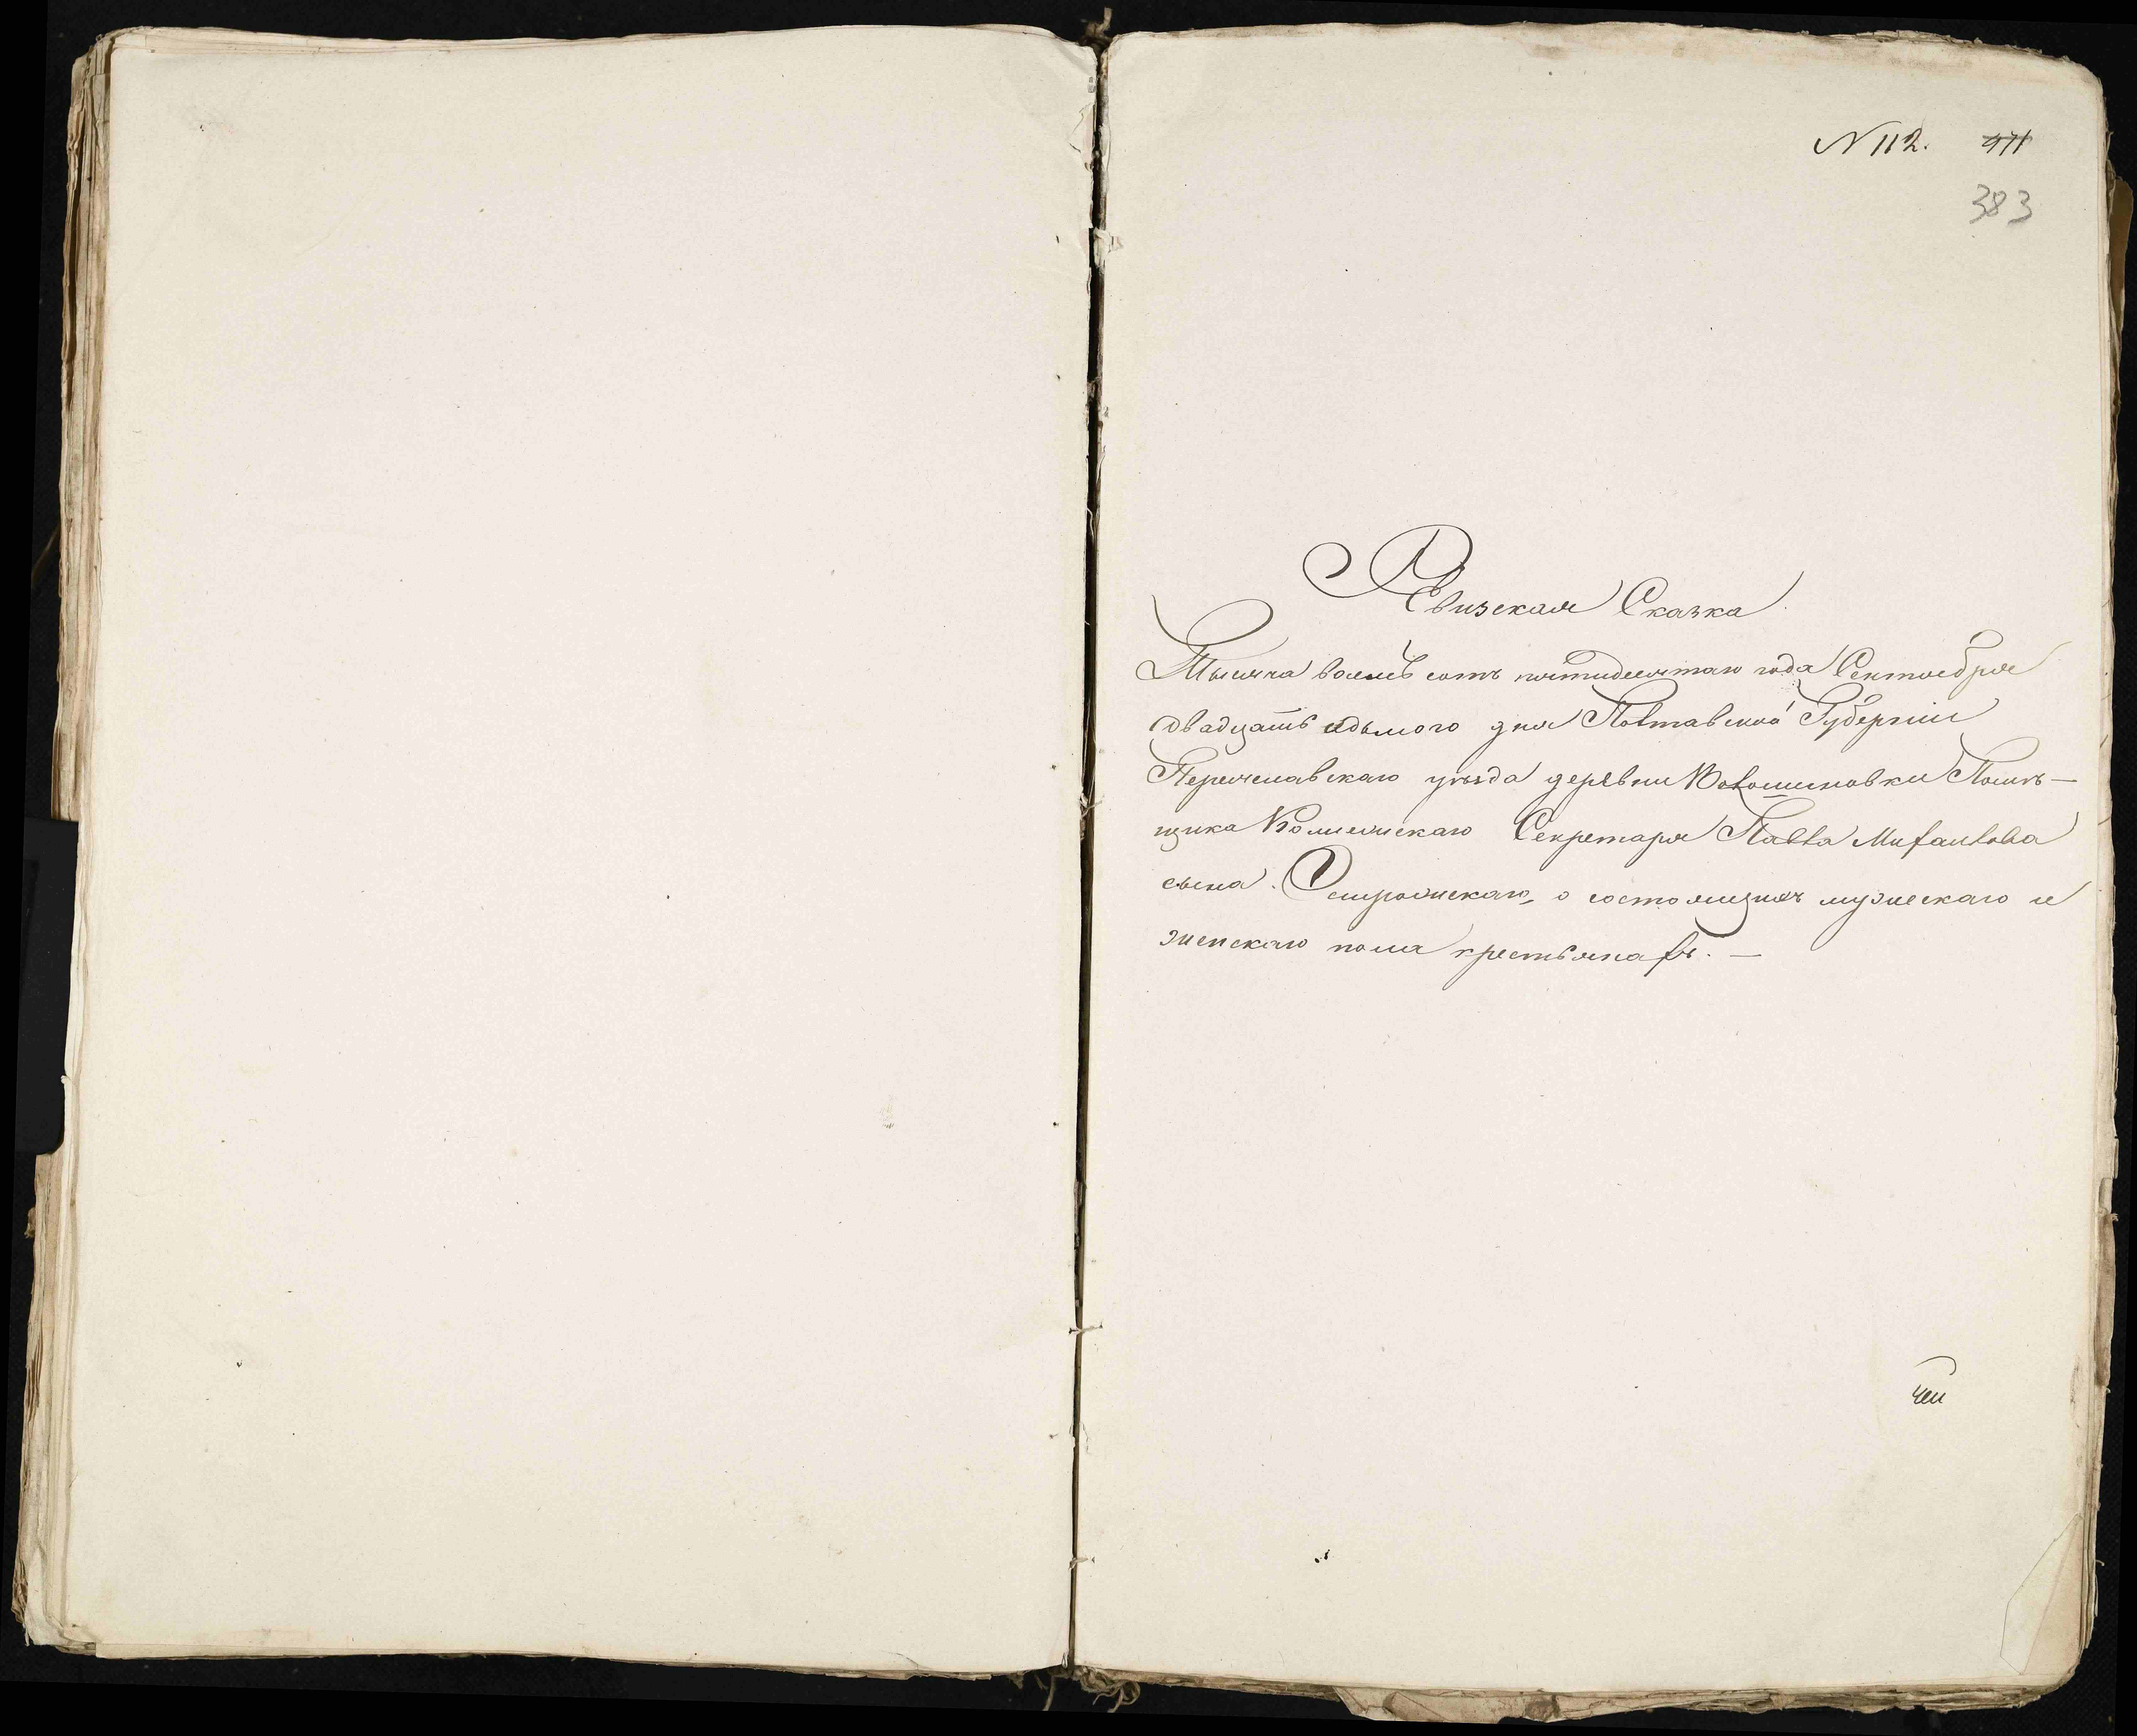 N 112. 411
383
Ревизская Сказка.
Тысяча восемь сотъ пятидесятаго года Сентября
двадцать седьмого дня Полтавской Губерніи
Переяславскаго уѣзда деревни Волошиновки Помѣ—
щика Коллежскаго Секретаря Павла Михаилова
сына. Острожскаго, о состоящихъ мужескаго и
женскаго пола крестьянахъ. —